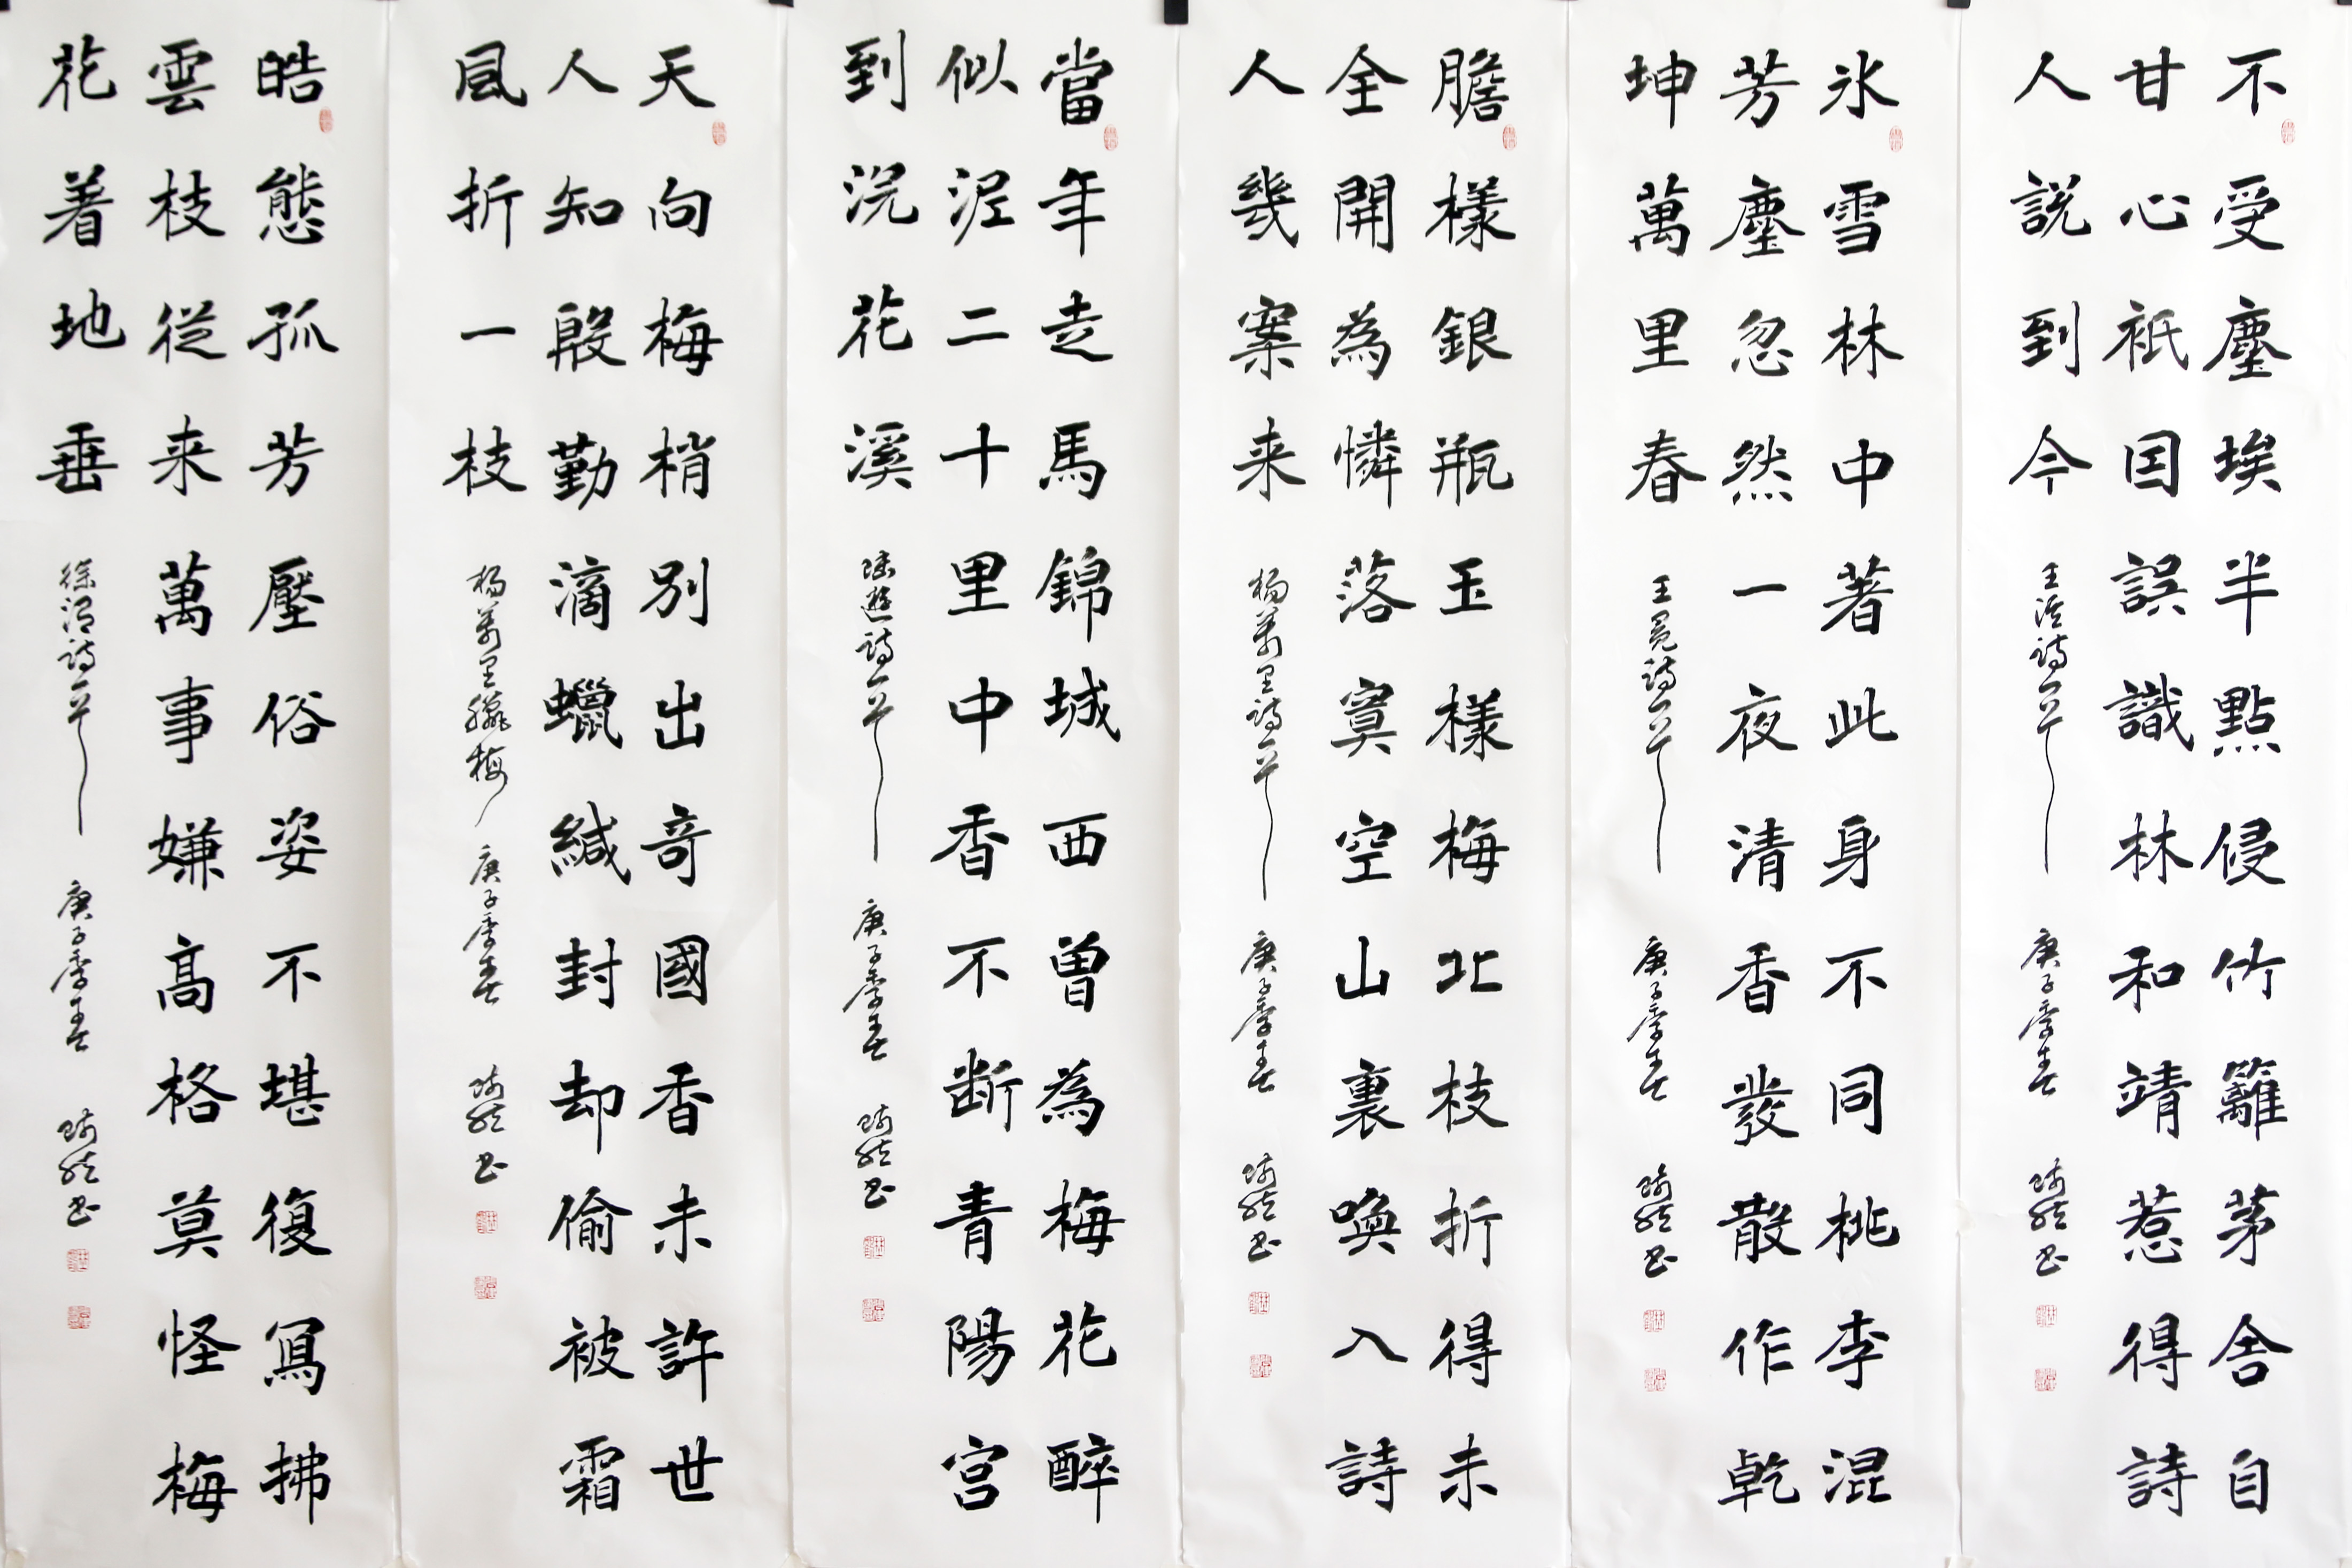 不受塵埃半點侵竹籬茅舍自
甘心衹因誤識林和靖惹得詩
人說到今
王淇詩一首
庚子季春
冰雪林中著此身不同桃李混
芳塵忽然一夜清香發散作乾
坤萬里春
王冕詩一首
庚子季春
膽樣銀瓶玉樣梅北枝折得未
全開為憐落寞空山裏喚入詩
人幾案来
楊萬里詩一首
庚子季春
當年走馬錦城西曾為梅花醉
似泥二十里中香不断青陽宮
到浣花溪
陸遊詩一首
庚子季春
天向梅梢別出奇國香未許世
人知殷勤滴蠟緘封却偷被霜
風折一枝
楊萬里臘梅
庚子季春
皓態孤芳壓俗姿不堪復寫拂
雲枝從来萬事嫌高格莫怪梅
花着地垂
徐渭詩一首
庚子季春